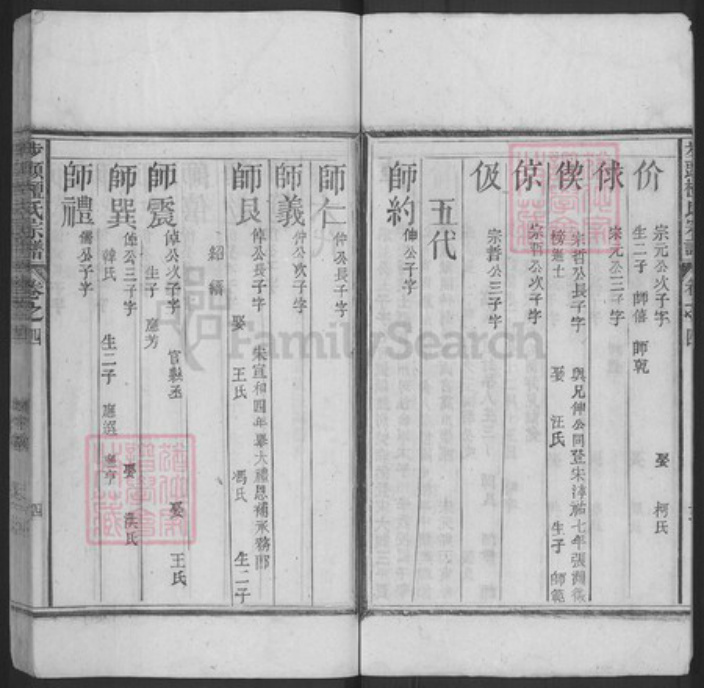 价
宗元公次子字
生二子 師僖 師乾
娶 柯氏
俅
宗元公三子字
偰
宗哲公長子字 與兄伸公同登宋淳祐七年張淵微
榜進士 娶 汪氏 生子 師範
倞
宗哲公次子字
伋
宗哲公三子字
五代
師約
伸公子字
師仁
仲公長子字
師義
仲公次子字
師良
倬公長子字 宋宣和四年舉大禮恩補承務郎
娶 王氏 馮氏 生二子
紹
師震
倬公次子字 官縣丞 娶 王氏
生子 應芳
師巽
倬公三子字 娶 洪氏
韓氏 生二子
師禮
儒公子字
氏宗譜 卷之四
四
FamilySearch